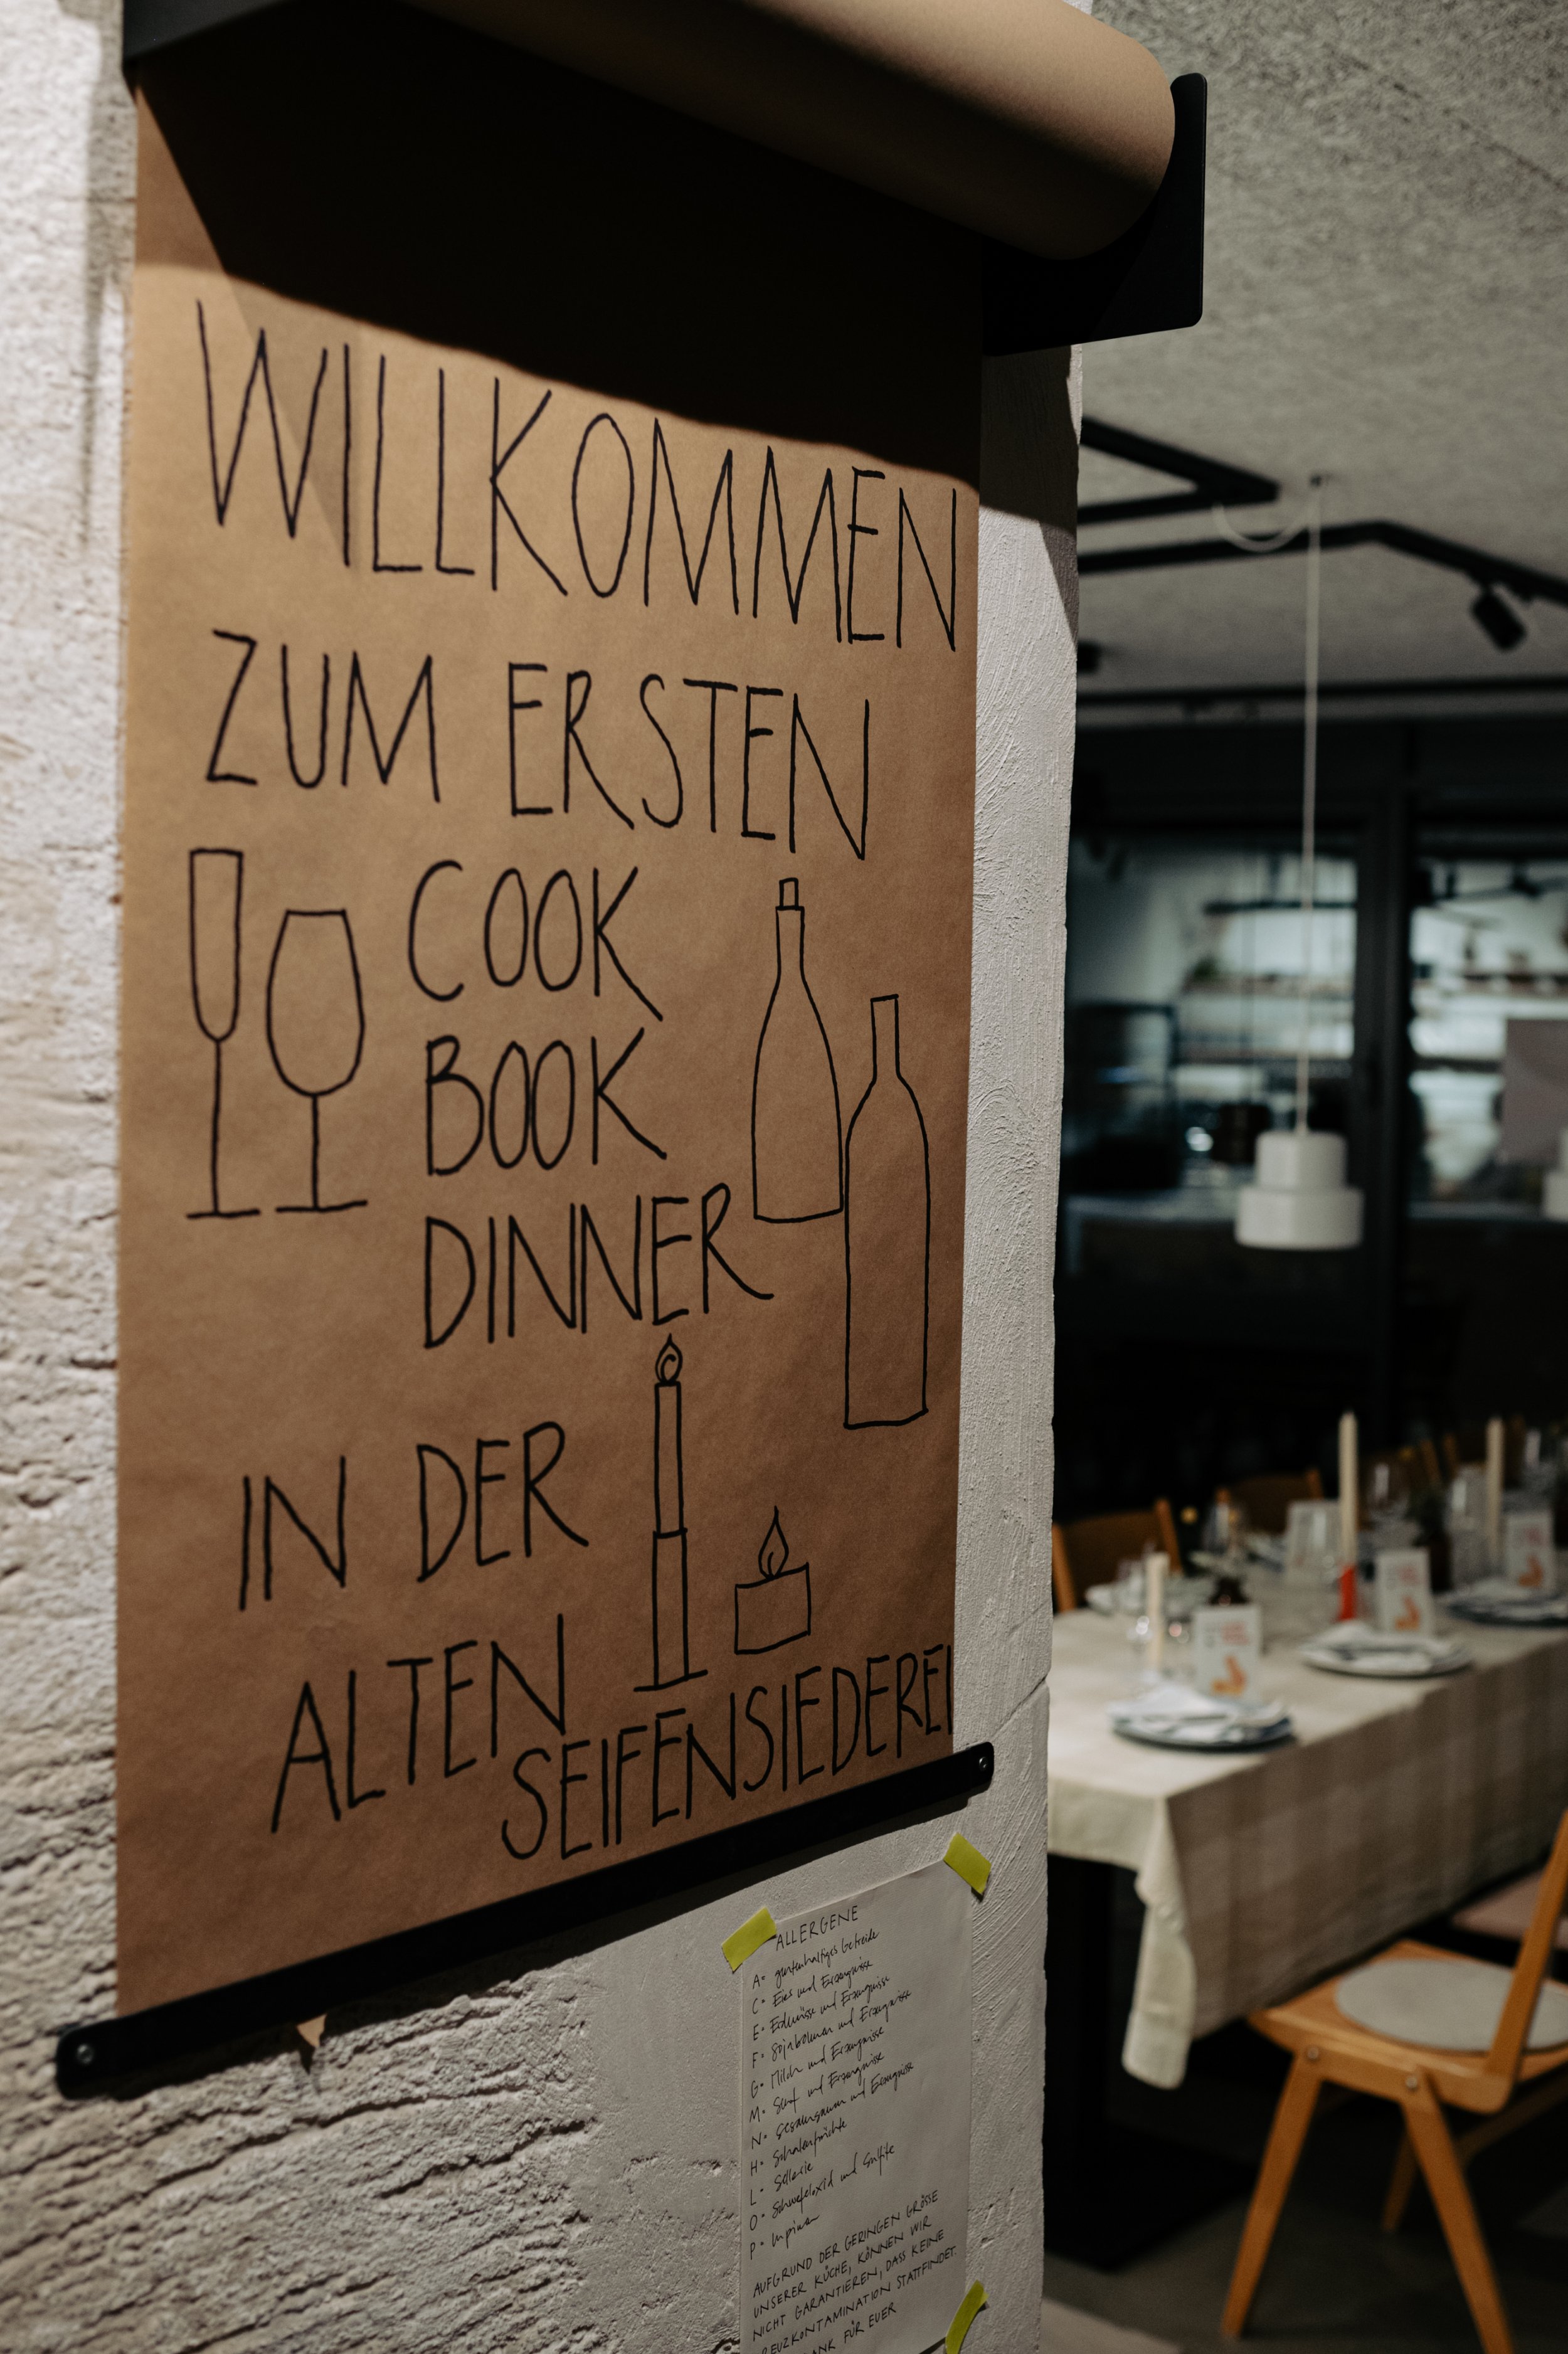 WILLKOMMEN
ZUM ERSTEN
COOK
BOOK
DINNER
IN DER
ALTEN
SEIFENSIEDEREI
ALLERGENE
A= glutenhaltiges Getreide
C= Eier und Erzeugnisse
E= Erdnüsse und Erzeugnisse
F= Sojabohnen und Erzeugnisse
G= Milch und Erzeugnisse
M= Senf und Erzeugnisse
N= Sesamsamen und Erzeugnisse
H= Schalenfrüchte
L= Sellerie
O= Schwefeloxid und Sulfite
P= Lupinen
AUFGRUND DER GERINGEN GRÖSSE
UNSERER KÜCHE, KÖNNEN WIR
NICHT GARANTIEREN, DASS KEINE
REUZKONTAMINATION STATTFINDET.
ANK FÜR EUER